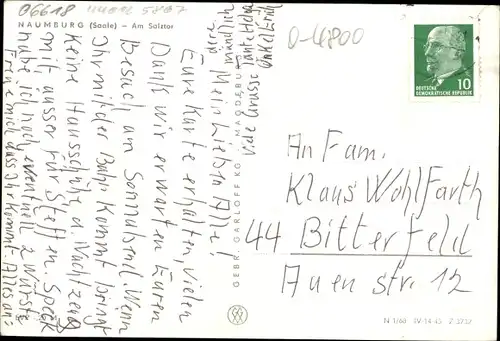 06618
NAUMBURG (Saale) – Am Salztor
Mein lieben Alle!
Eure Karte erhalten, vielen
Dank wir erwarten Euren
Besuch am Sonnabend. Wenn
Ihr mit der Bahn kommt bringt
Keine Hausschuhe u. Nachtzeug
mit, ausser für Steffen. Speck
habe ich noch eventuell 2 Würste
Freue mich dass Ihr kommt. Alles an=
dere
mündlich
viele Grüsse Tante
Onkel Erich
GEBR. GARLOFF KG MAGDEBURG
0-4800
10
DEUTSCHE
DEMOKRATISCHE REPUBLIK
An Fam.
Klaus Wohlfarth
44 Bitterfeld
Auenstr. 12
N 1/60 IV-14-45 Z 3737